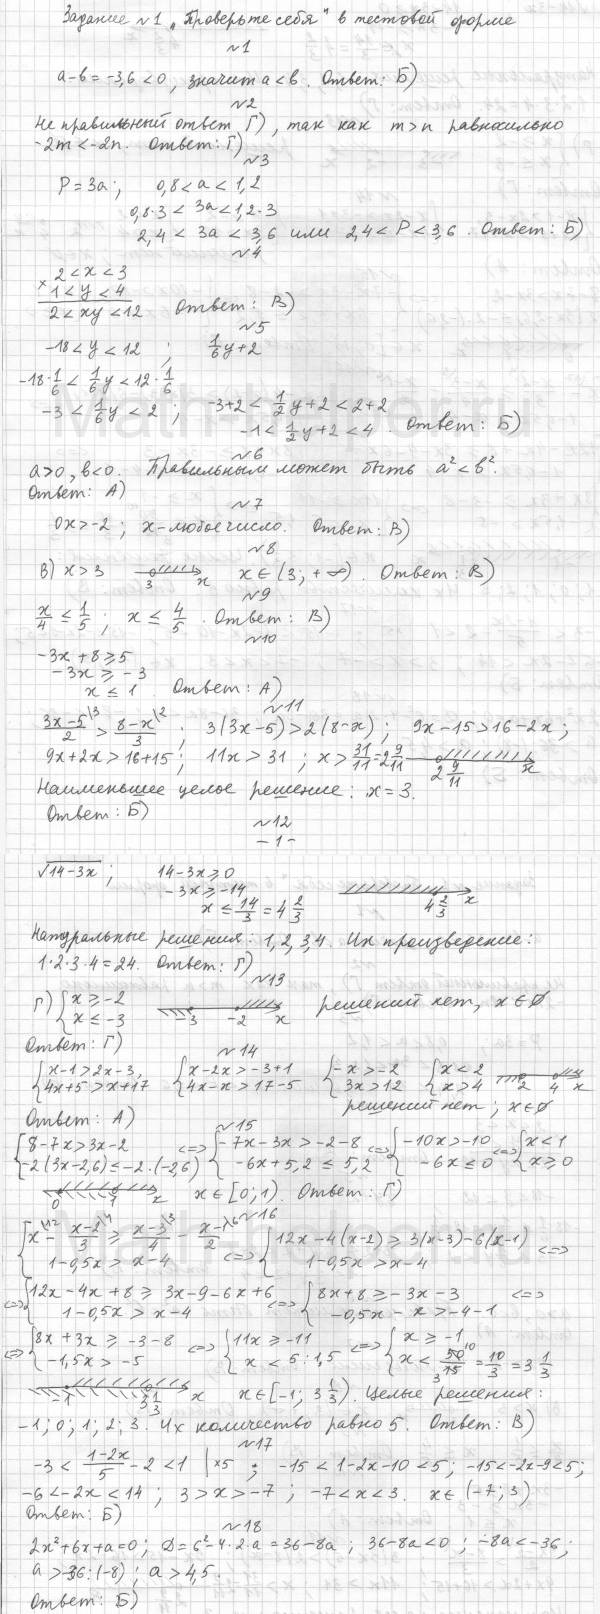 Задание №1 „Проверьте себя" в тестовой форме
№1
a-b = -3,6 < 0, значит a < b. Ответ: Б)
№2
Не правильный ответ Г), так как m > n равносильно
-2m < -2n. Ответ: Г)
№3
P = 3a; 0,8 < a < 1,2
0,8·3 < 3a < 1,2·3
2,4 < 3a < 3,6 или 2,4 < P < 3,6. Ответ: Б)
№4
2 < x < 3
× 1 < y < 4
2 < xy < 12 Ответ: В)
№5
-18 < y < 12; 1/6 y + 2
-18·1/6 < 1/6 y < 12·1/6
-3 < 1/6 y < 2; -3+2 < 1/2 y + 2 < 2+2
-1 < 1/2 y + 2 < 4. Ответ: Б)
№6
a > 0, b < 0. Правильным может быть a² < b².
Ответ: А)
№7
0x > -2; x - любое число. Ответ: В)
№8
В) x > 3 3 x x ∈ (3; +∞). Ответ: В)
№9
x/4 ≤ 1/5; x ≤ 4/5. Ответ: В)
№10
-3x + 8 ≥ 5
-3x ≥ -3
x ≤ 1. Ответ: А)
№11
(3x-5)/2 \3 > (8-x)/3 \2; 3(3x-5) > 2(8-x); 9x-15 > 16-2x;
9x+2x > 16+15; 11x > 31; x > 31/11 = 2 9/11 2 9/11 x
Наименьшее целое решение: x = 3.
Ответ: Б)
№12
- 1 -
√(14-3x); 14-3x ≥ 0
-3x ≥ -14
x ≤ 14/3 = 4 2/3 4 2/3 x
Натуральные решения: 1, 2, 3, 4. Их произведение:
1·2·3·4 = 24. Ответ: Г)
№13
Г) { x ≥ -2
x ≤ -3 -3 -2 x решений нет, x ∈ ∅
Ответ: Г)
№14
{ x-1 > 2x-3, { x-2x > -3+1 { -x > -2 { x < 2
4x+5 > x+17 4x-x > 17-5 3x > 12 x > 4 2 4 x
решений нет; x ∈ ∅
Ответ: А)
№15
{ 8-7x > 3x-2 <=> { -7x-3x > -2-8 <=> { -10x > -10 <=> { x < 1
-2(3x-2,6) ≤ -2·(-2,6) -6x+5,2 ≤ 5,2 -6x ≤ 0 x ≥ 0
0 1 x x ∈ [0; 1). Ответ: Г)
№16
{ x \12 - (x-2)/3 \4 ≥ (x-3)/4 \3 - (x-1)/2 \6 <=> { 12x-4(x-2) ≥ 3(x-3)-6(x-1) <=>
1-0,5x > x-4 1-0,5x > x-4
<=> { 12x-4x+8 ≥ 3x-9-6x+6 <=> { 8x+8 ≥ -3x-3 <=>
1-0,5x > x-4 -0,5x-x > -4-1
<=> { 8x+3x ≥ -3-8 <=> { 11x ≥ -11 <=> { x ≥ -1
-1,5x > -5 x < 5:1,5 x < 50/15 = 10/3 = 3 1/3
-1 3 1/3 x x ∈ [-1; 3 1/3). Целые решения:
-1; 0; 1; 2; 3. Их количество равно 5. Ответ: В)
№17
-3 < (1-2x)/5 - 2 < 1 |×5; -15 < 1-2x-10 < 5; -15 < -2x-9 < 5;
-6 < -2x < 14; 3 > x > -7; -7 < x < 3. x ∈ (-7; 3)
Ответ: Б)
№18
2x²+6x+a=0; D = 6²-4·2·a = 36-8a; 36-8a < 0; -8a < -36;
a > -36:(-8); a > 4,5.
Ответ: Б)